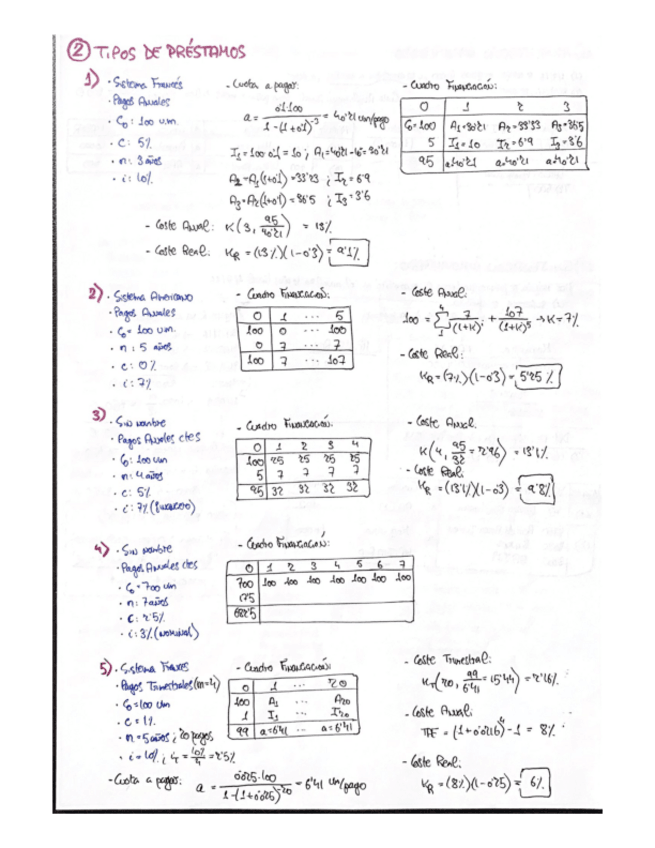 ② TIPOS DE PRÉSTAMOS
1) · Sistema Francés
· Pagos Anuales
· C₀: 100 u.m.
· C: 5%
· n: 3 años
· i: 10%
- Cuota a pagar:
a = 0'1·100 / 1-(1+0'1)^-3 = 40'21 um/pago
I₁ = 100·0'1 = 10 ; A₁ = 40'21-10 = 30'21
A₂ = A₁(1+0'1) = 33'23 ; I₂ = 6'9
A₃ = A₂(1+0'1) = 36'5 ; I₃ = 3'6
- Cuadro Financiación:
0 1 2 3
C₀=100 A₁=30'21 A₂=33'33 A₃=36'5
5 I₁=10 I₂=6'9 I₃=3'6
95 a=40'21 a=40'21 a=40'21
- Coste Anual: K(3, 95/40'21) = 13%
- Coste Real: K_R = (13%)(1-0'3) = 9'1%
2) · Sistema Americano
· Pagos Anuales
· C₀ = 100 um.
· n: 5 años
· c: 0%
· i: 7%
- Cuadro Financiación:
0 1 ... 5
100 0 ... 100
0 7 ... 7
100 7 ... 107
- Coste Anual:
100 = Σ 4 1 7/(1+K)^i + 107/(1+K)^5 → K = 7%
- Coste Real:
K_R = (7%)(1-0'3) = 5'25%
3) · Sin nombre
· Pagos Anuales ctes
· C₀: 100 um
· n: 4 años
· c: 5%
· i: 7%
- Cuadro Financiación:
0 1 2 3 4
100 25 25 25 25
5 7 7 7 7
95 32 32 32 32
- Coste Anual
K(4, 95/32 = 2'96) = 13'1%
- Coste Real:
K_R = (13'1%)(1-0'3) = 9'8%
4) · Sin nombre
· Pagos Anuales ctes
· C₀ = 700 um
· n: 7 años
· C: 2'5%
· i: 3% (nominal)
- Cuadro Financiación:
0 1 2 3 4 5 6 7
700 100 100 100 100 100 100 100
175
682'5
5) · Sistema Francés
· Pagos Trimestrales (m=4)
· C₀ = 100 um
· C = 1%
· n = 5 años ; 20 pagos
· i = 10% ; i₄ = 10%/4 = 2'5%
- Cuota a pagar: a = 0'025·100 / 1-(1+0'025)^-20 = 6'41 um/pago
- Cuadro Financiación:
0 1 ... 20
100 A₁ ... A₂₀
1 I₁ ... I₂₀
99 a=6'41 ... a=6'41
- Coste Trimestral:
K_T(20, 99/6'41 = 15'44) = 2'16%
- Coste Anual:
TAE = (1+0'0216)^4 - 1 = 8%
- Coste Real:
K_R = (8%)(1-0'25) = 6%